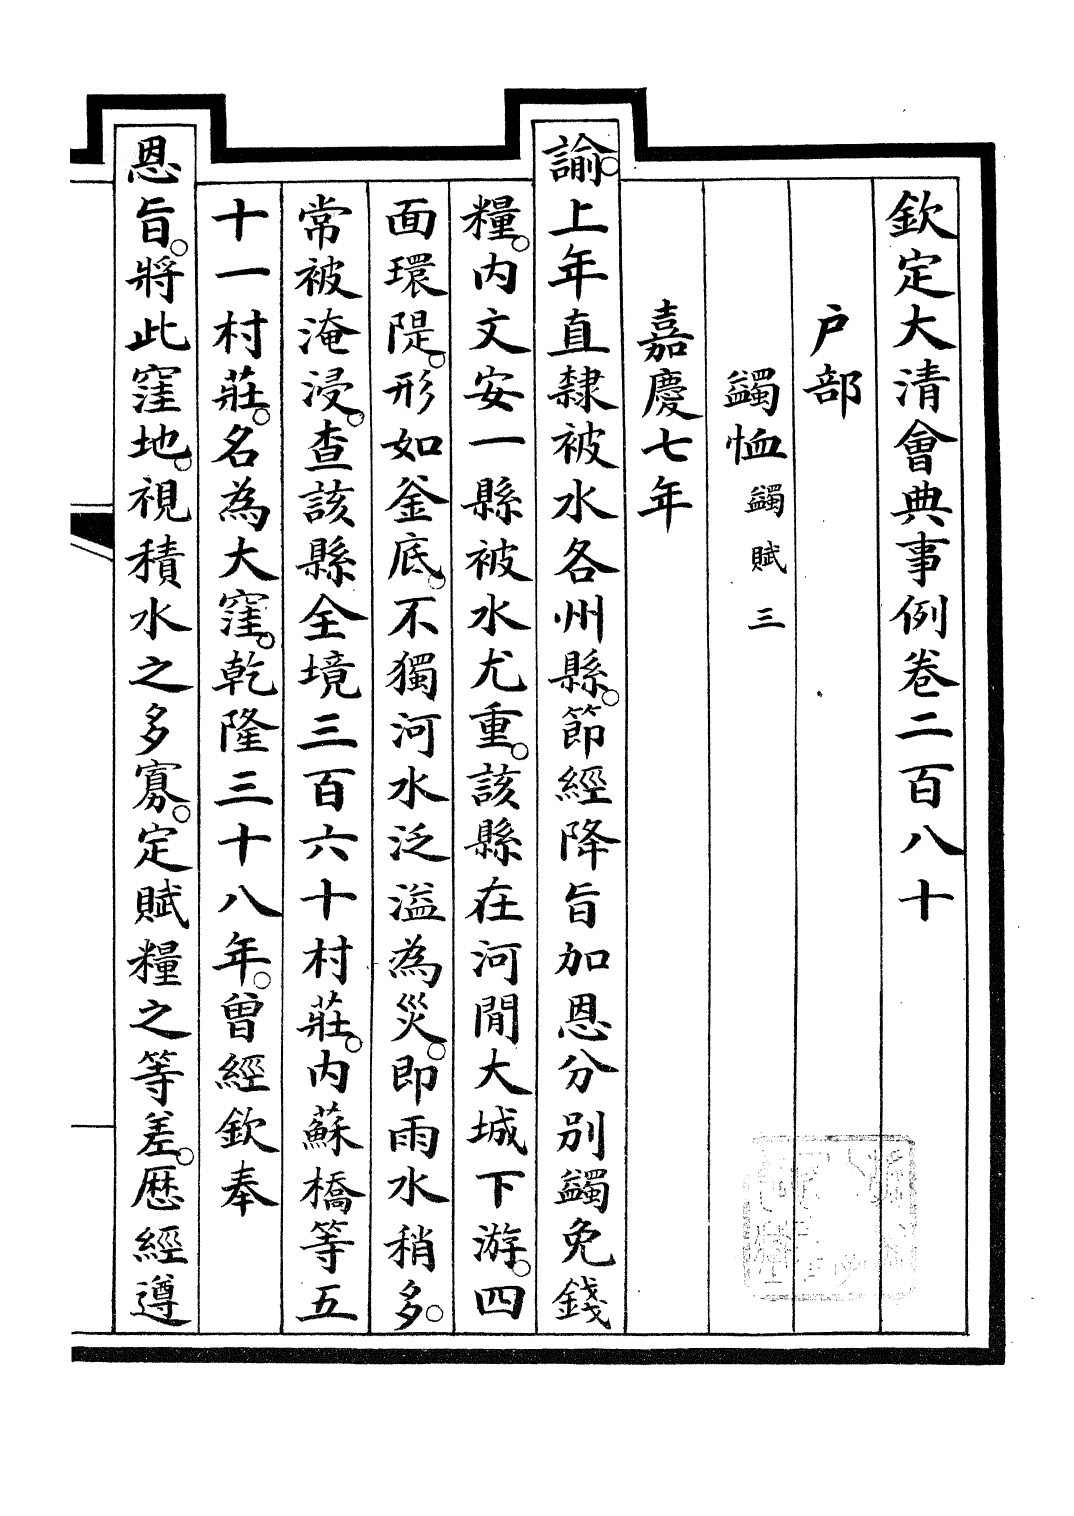 欽定大清會典事例卷二百八十
户部
蠲恤蠲賦三
嘉慶七年
諭。上年直隸被水各州縣。節經降旨加恩分別蠲免錢
糧。内文安一縣被水尤重。該縣在河閒大城下游。四
面環隄。形如釜底。不獨河水泛溢為災。即雨水稍多。
常被淹浸。查該縣全境三百六十村莊。内蘇橋等五
十一村莊。名為大窪。乾隆三十八年。曾經欽奉
恩旨。將此窪地。視積水之多寡。定賦糧之等差。歷經遵